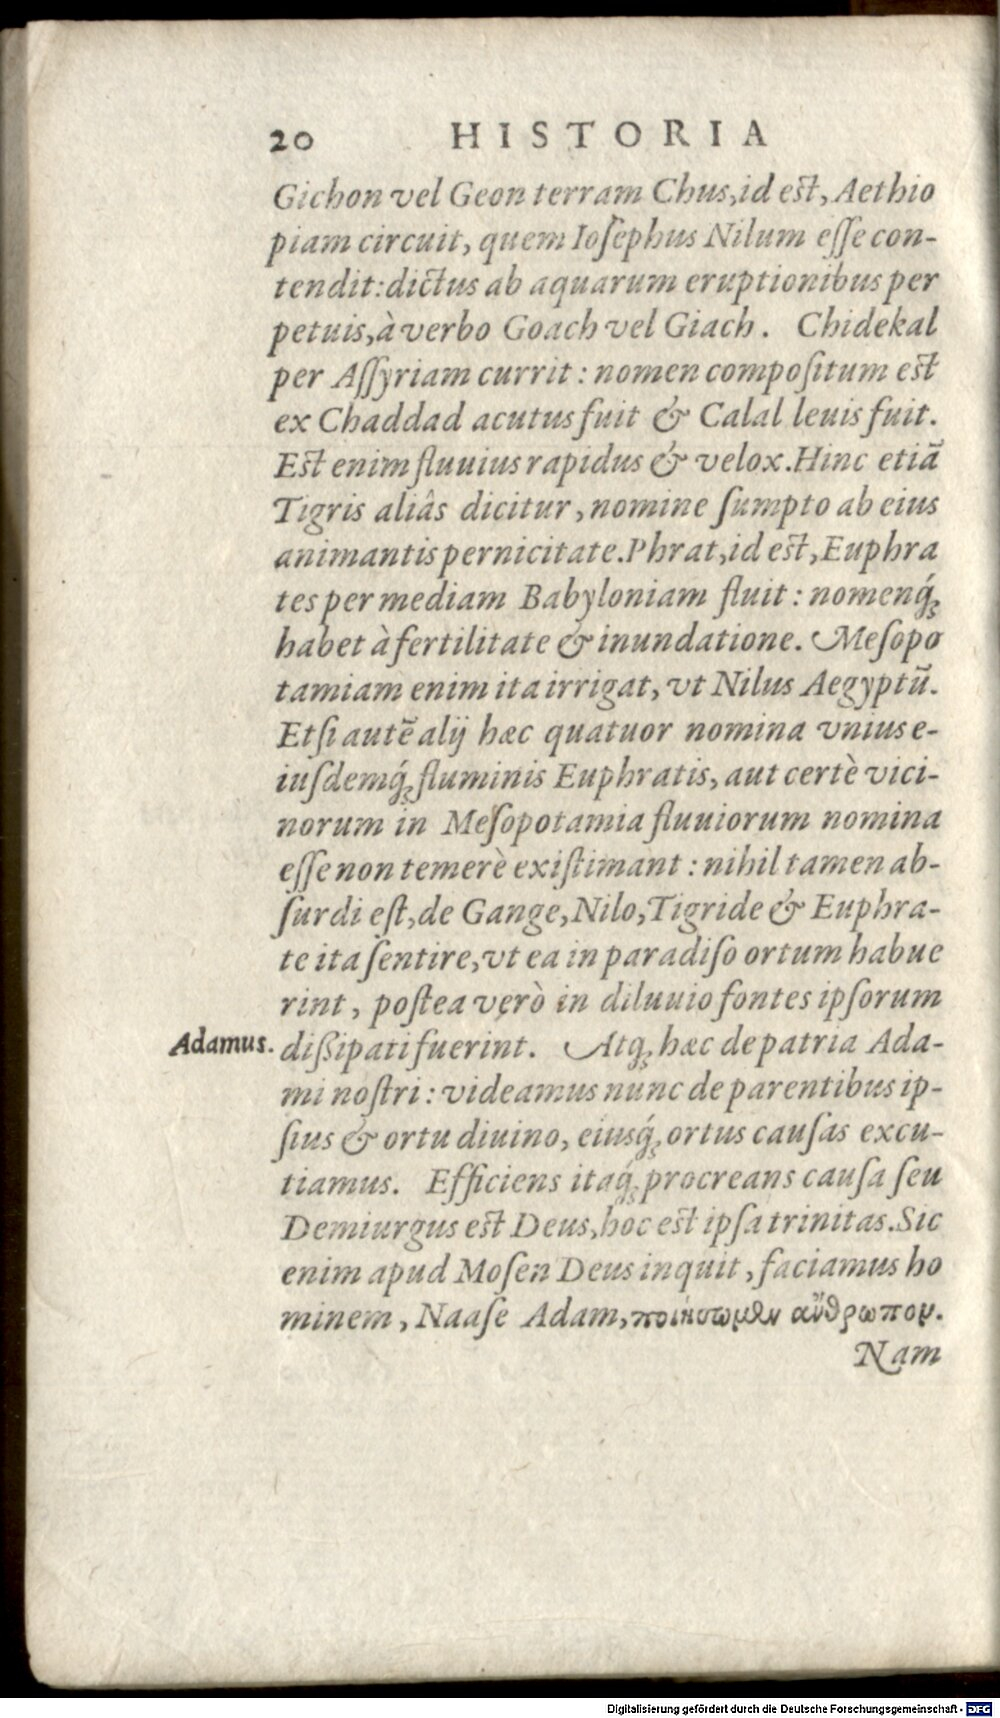 20 HISTORIA
Gichon vel Geon terram Chus, id est, Aethio
piam circuit, quem Ioſephus Nilum eſſe con-
tendit: dictus ab aquarum eruptionibus per
petuis, à verbo Goach vel Giach. Chidekal
per Aſſyriam currit: nomen compoſitum est
ex Chaddad acutus fuit & Calal leuis fuit.
Est enim fluuius rapidus & velox. Hinc etiã
Tigris aliâs dicitur, nomine ſumpto ab eius
animantis pernicitate. Phrat, id est, Euphra
tes per mediam Babyloniam fluit: nomenq́;
habet à fertilitate & inundatione. Meſopo
tamiam enim ita irrigat, vt Nilus Aegyptũ.
Etſi autẽ alij hæc quatuor nomina vnius e-
iuſdemq́; fluminis Euphratis, aut certè vici-
norum in Meſopotamia fluuiorum nomina
eſſe non temerè exiſtimant: nihil tamen ab-
ſurdi eſt, de Gange, Nilo, Tigride & Euphra-
te ita ſentire, vt ea in paradiſo ortum habue
rint, poſtea verò in diluuio fontes ipſorum
Adamus. dißipati fuerint. Atq; hæc de patria Ada-
mi noſtri: videamus nunc de parentibus ip-
ſius & ortu diuino, eiusq́; ortus cauſas excu-
tiamus. Efficiens itaq́; procreans cauſa ſeu
Demiurgus est Deus, hoc est ipſa trinitas. Sic
enim apud Moſen Deus inquit, faciamus ho
minem, Naaſe Adam, ποιήσωμεν ἄνθρωπον.
Nam
Digitalisierung gefördert durch die Deutsche Forschungsgemeinschaft - DFG